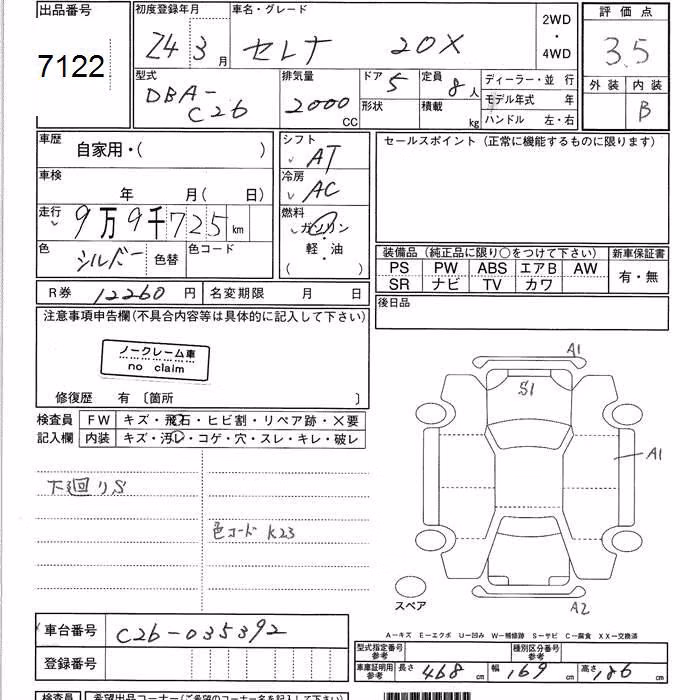 出品番号
7122
初度登録年月
24 3 月
車名・グレード
セレナ 20X
2WD
・
4WD
評価点
3.5
外装 内装
B
型式
DBA-
C26
排気量
2000 CC
ドア 5
形状
定員 8 人
積載 kg
ディーラー・並 行
モデル年式 年
ハンドル 左・右
車歴
自家用・( )
車検
年 月( 日)
走行
9万9千725 km
色
シルバー
色替
色コード
シフト
AT
冷房
AC
燃料
ガソリン
・
軽・油
( )
R券 12260 円
名変期限 月 日
セールスポイント(正常に機能するものに限ります)
装備品(純正品に限り○をつけて下さい)
PS PW ABS エアB AW
SR ナビ TV カワ
新車保証書
有・無
後日品
注意事項申告欄(不具合内容等は具体的に記入して下さい)
ノークレーム車
no claim
修復歴 有〔箇所 〕
検査員
記入欄
FW キズ・飛石・ヒビ割・リペア跡・X要
内装 キズ・汚レ・コゲ・穴・スレ・キレ・破レ
下廻りS
色コード K23
A1
S1
A1
A2
スペア
A−キズ E−エクボ U−凹み W−補修跡 S−サビ C−腐食 XX−交換済
車台番号 C26-035392
登録番号
型式指定番号
参考
種別区分番号
参考
車庫証明用
参考
長さ 468 cm 幅 169 cm 高さ 186 cm
検査員
希望出品コーナー(ご希望のコーナー名を記入下さい)